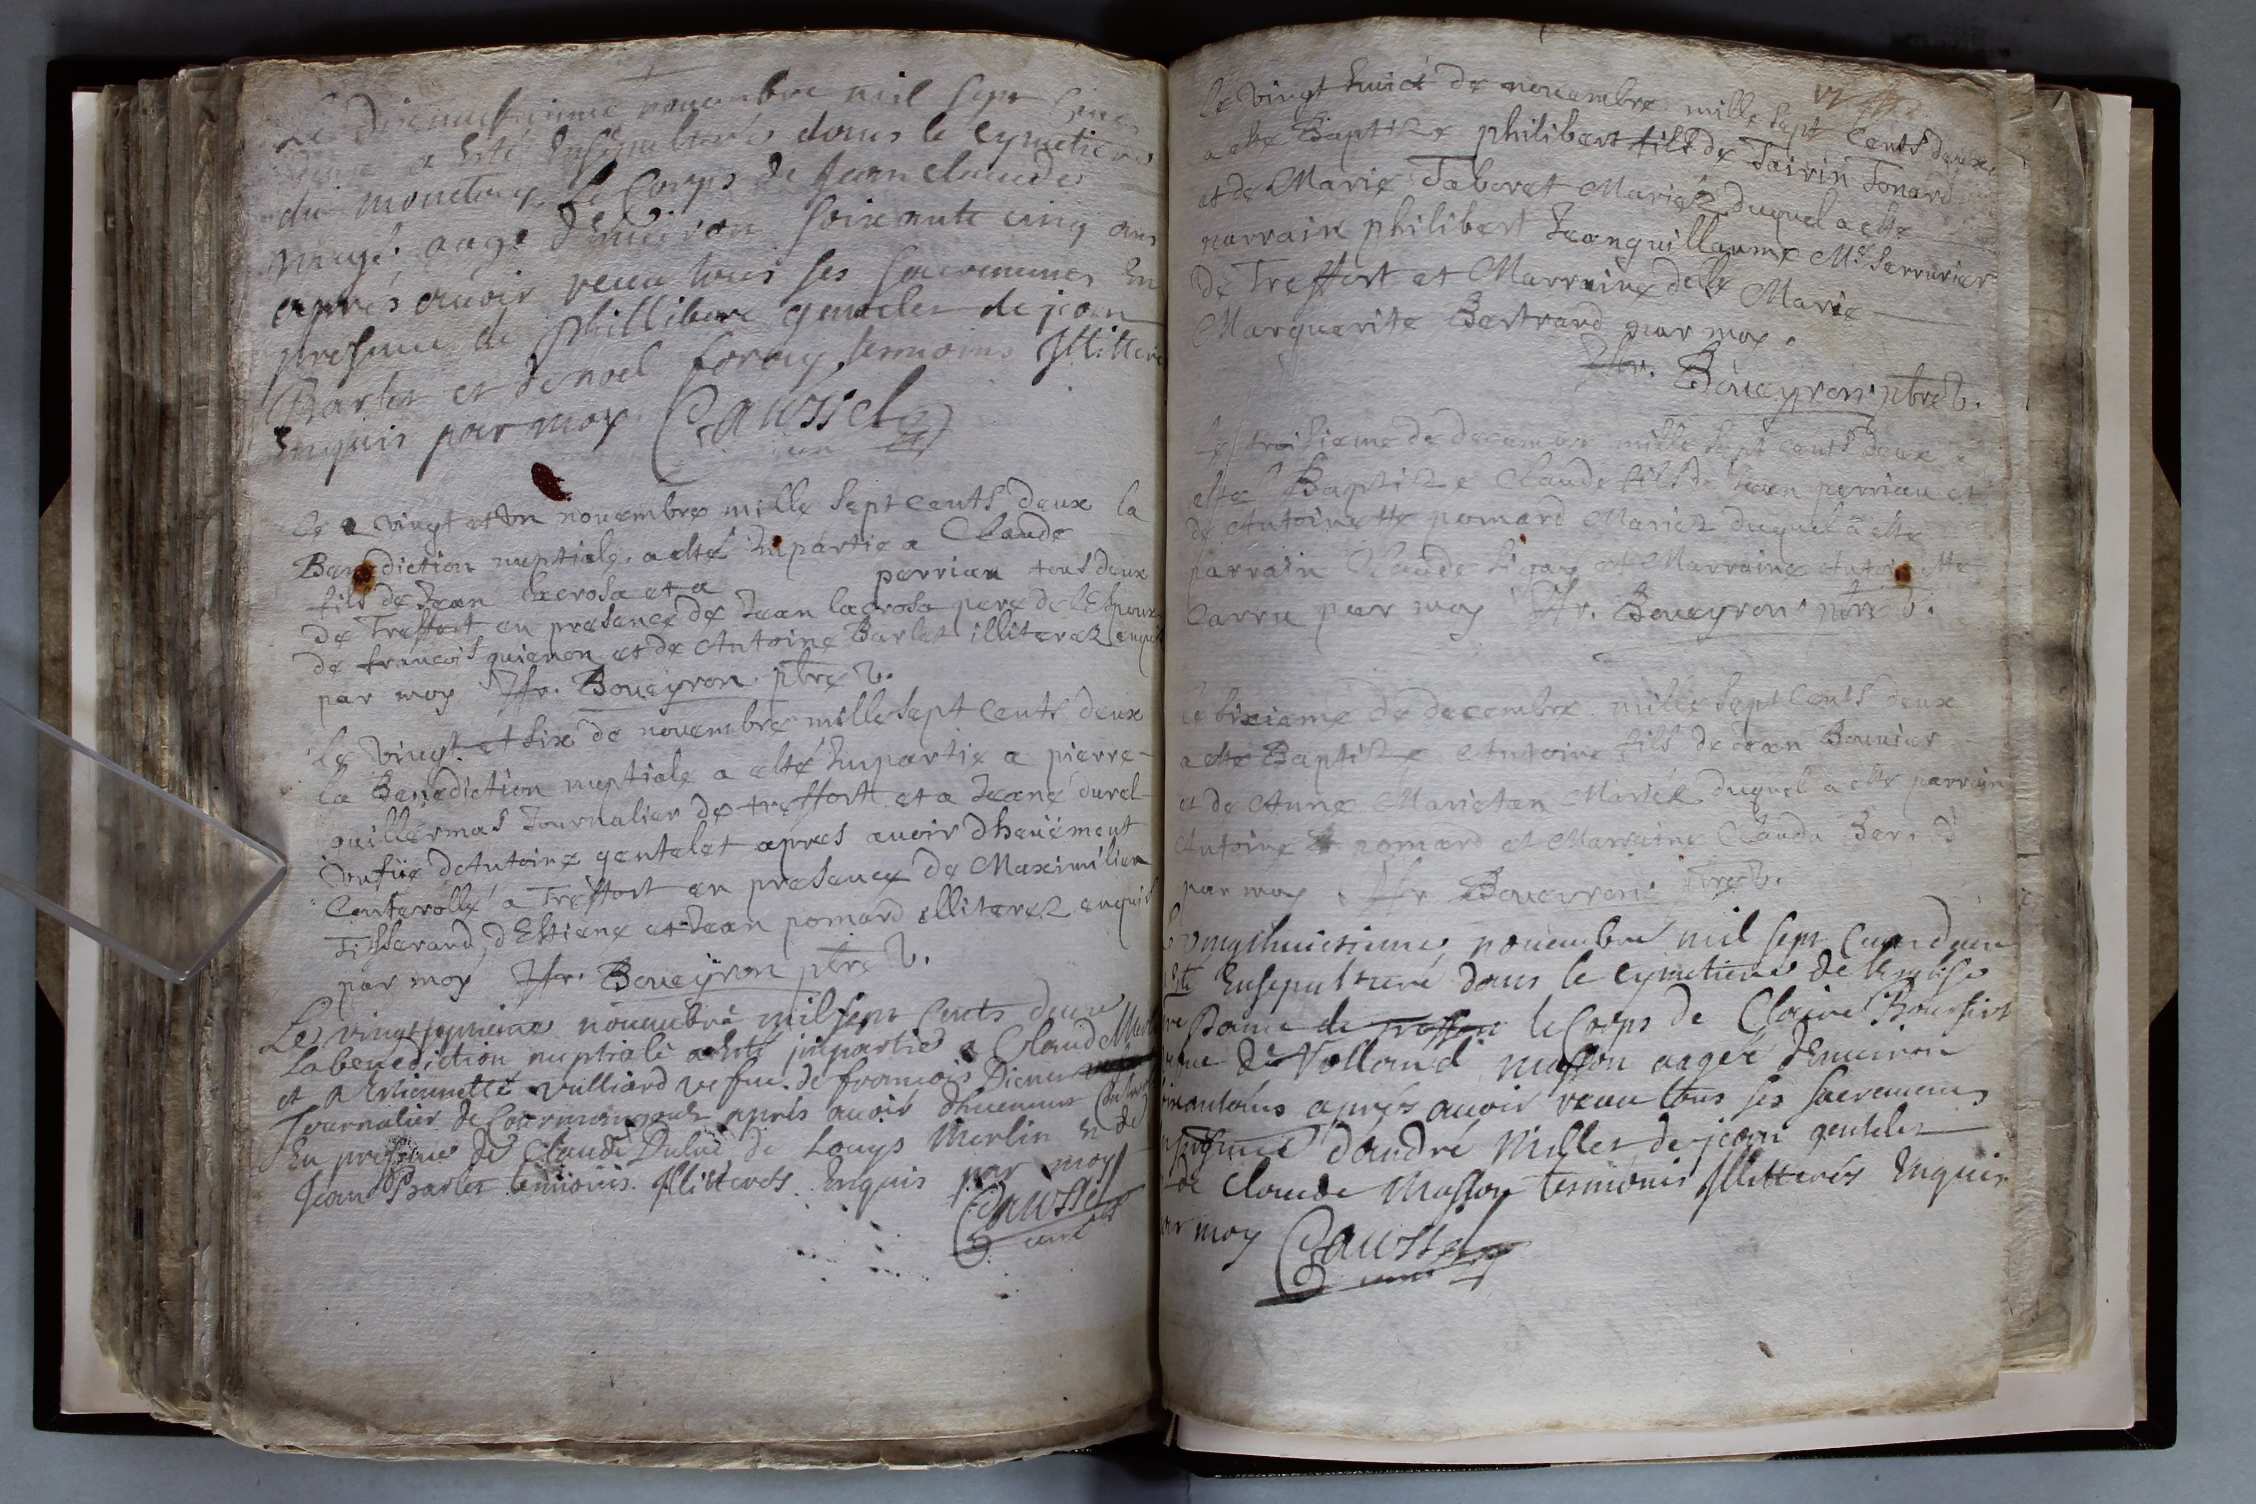 Le dixneufvieme nouembre mil sept Cents
deux a esté Ensepulturé dans le Cymetiere
du monetay le Corps de Jean Claude
aagé d'Enuiron soixante cinq ans
aprés auoir receu tous ses sacremens En
presence de Phillibert gentelet de jean
Barlet et de noel tesmoins Illitteres
Enquis par moy Caussel
curé
le vingt et vn nouembre mille sept cents deux la
Benediction nuptiale a esté Inpartie a Claude
fils de Jean lacrosa et a perrian tous deux
de Treffort en presence de Jean lacrosa pere de l'Espoux
de francois guienon et de Antoine Barlet illiterez enquis
par moy Boueyron ptre V.
le vingt et six de nouembre mille sept cents deux
la Benediction nuptiale a esté Inpartie a pierre
guillermas Journalier de treffort et a Jeane durel
vefue d'Antoine gentelet apres auoir dheuëment
Conterollé a Treffort en presence de Maximilien
Tisserand d'Estiene et Jean pomard illiterez enquis
par moy Boueyron ptre V.
Le vingt septieme nouembre mil sept Cents deux
La benediction nuptiale a esté jnpartie a Claude
et a Estiennette vulliard vefue de francois
Journalier de Courmangoux aprés auoir dheuement
En presence de Claude Dulac de Louys Merlin & de
Jean Barlet temoins Illitterés Enquis par moy
Caussel
curé
le vingt huict de nouembre mille sept cents deux
a este Baptize philibert fils de Tonard
et de Marie Taboret Mariéz duquel a esté
parrain philibert Jeanguillaume Me Serrurier
de Treffort et Marraine delle Marie
Marguerite Bertrand par moy.
Boueyron ptre V.
le troisieme de decembre mille sept cents deux a
esté Baptize Claude fils de Jean perrian et
de Antoinette pomard Mariez duquel a esté
parrain Claude et Marraine Antoinette
Carru par moy Boueyron ptre V.
le sixieme de decembre mille sept cents deux
a este Baptize Antoine fils de Jean Bouuier
et de Anne Marietan Mariéz duquel a esté parrain
Antoine pomard et Marraine Clauda
par moy Boueyron ptre V.
vingthuictieme nouembre mil sept Cents deux
esté Ensepulturé dans le Cymetiere de l'Esglise
Dame de treffort le Corps de Claire
de Volland masson aagée d'Enuiron
ans aprés auoir receu tous ses sacremens
presence d'andré Millet de jean gentelet
de Claude Masson tesmoins Illitterés Enquis
moy Caussel
curé